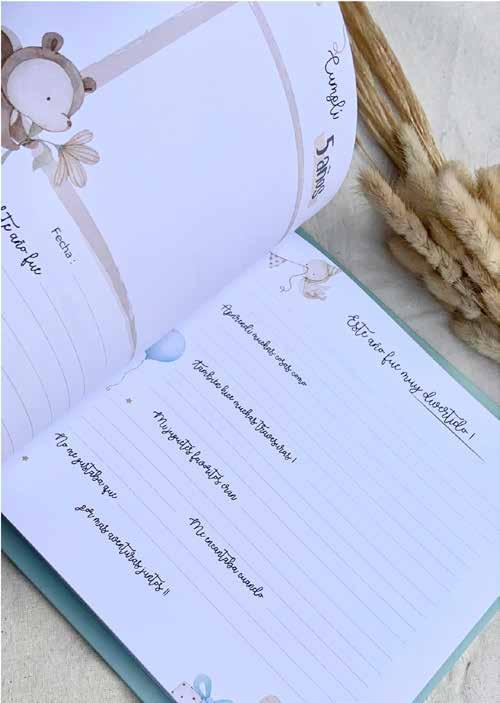 Cumplí
5 años
Fecha:
año fue
Este año fue muy divertido !
Aprendí muchas cosas como
también hice muchas travesuras !
Mi juguetes favoritos eran
Me encantaba cuando
No me gustaba que
por mas aventuras juntos !!